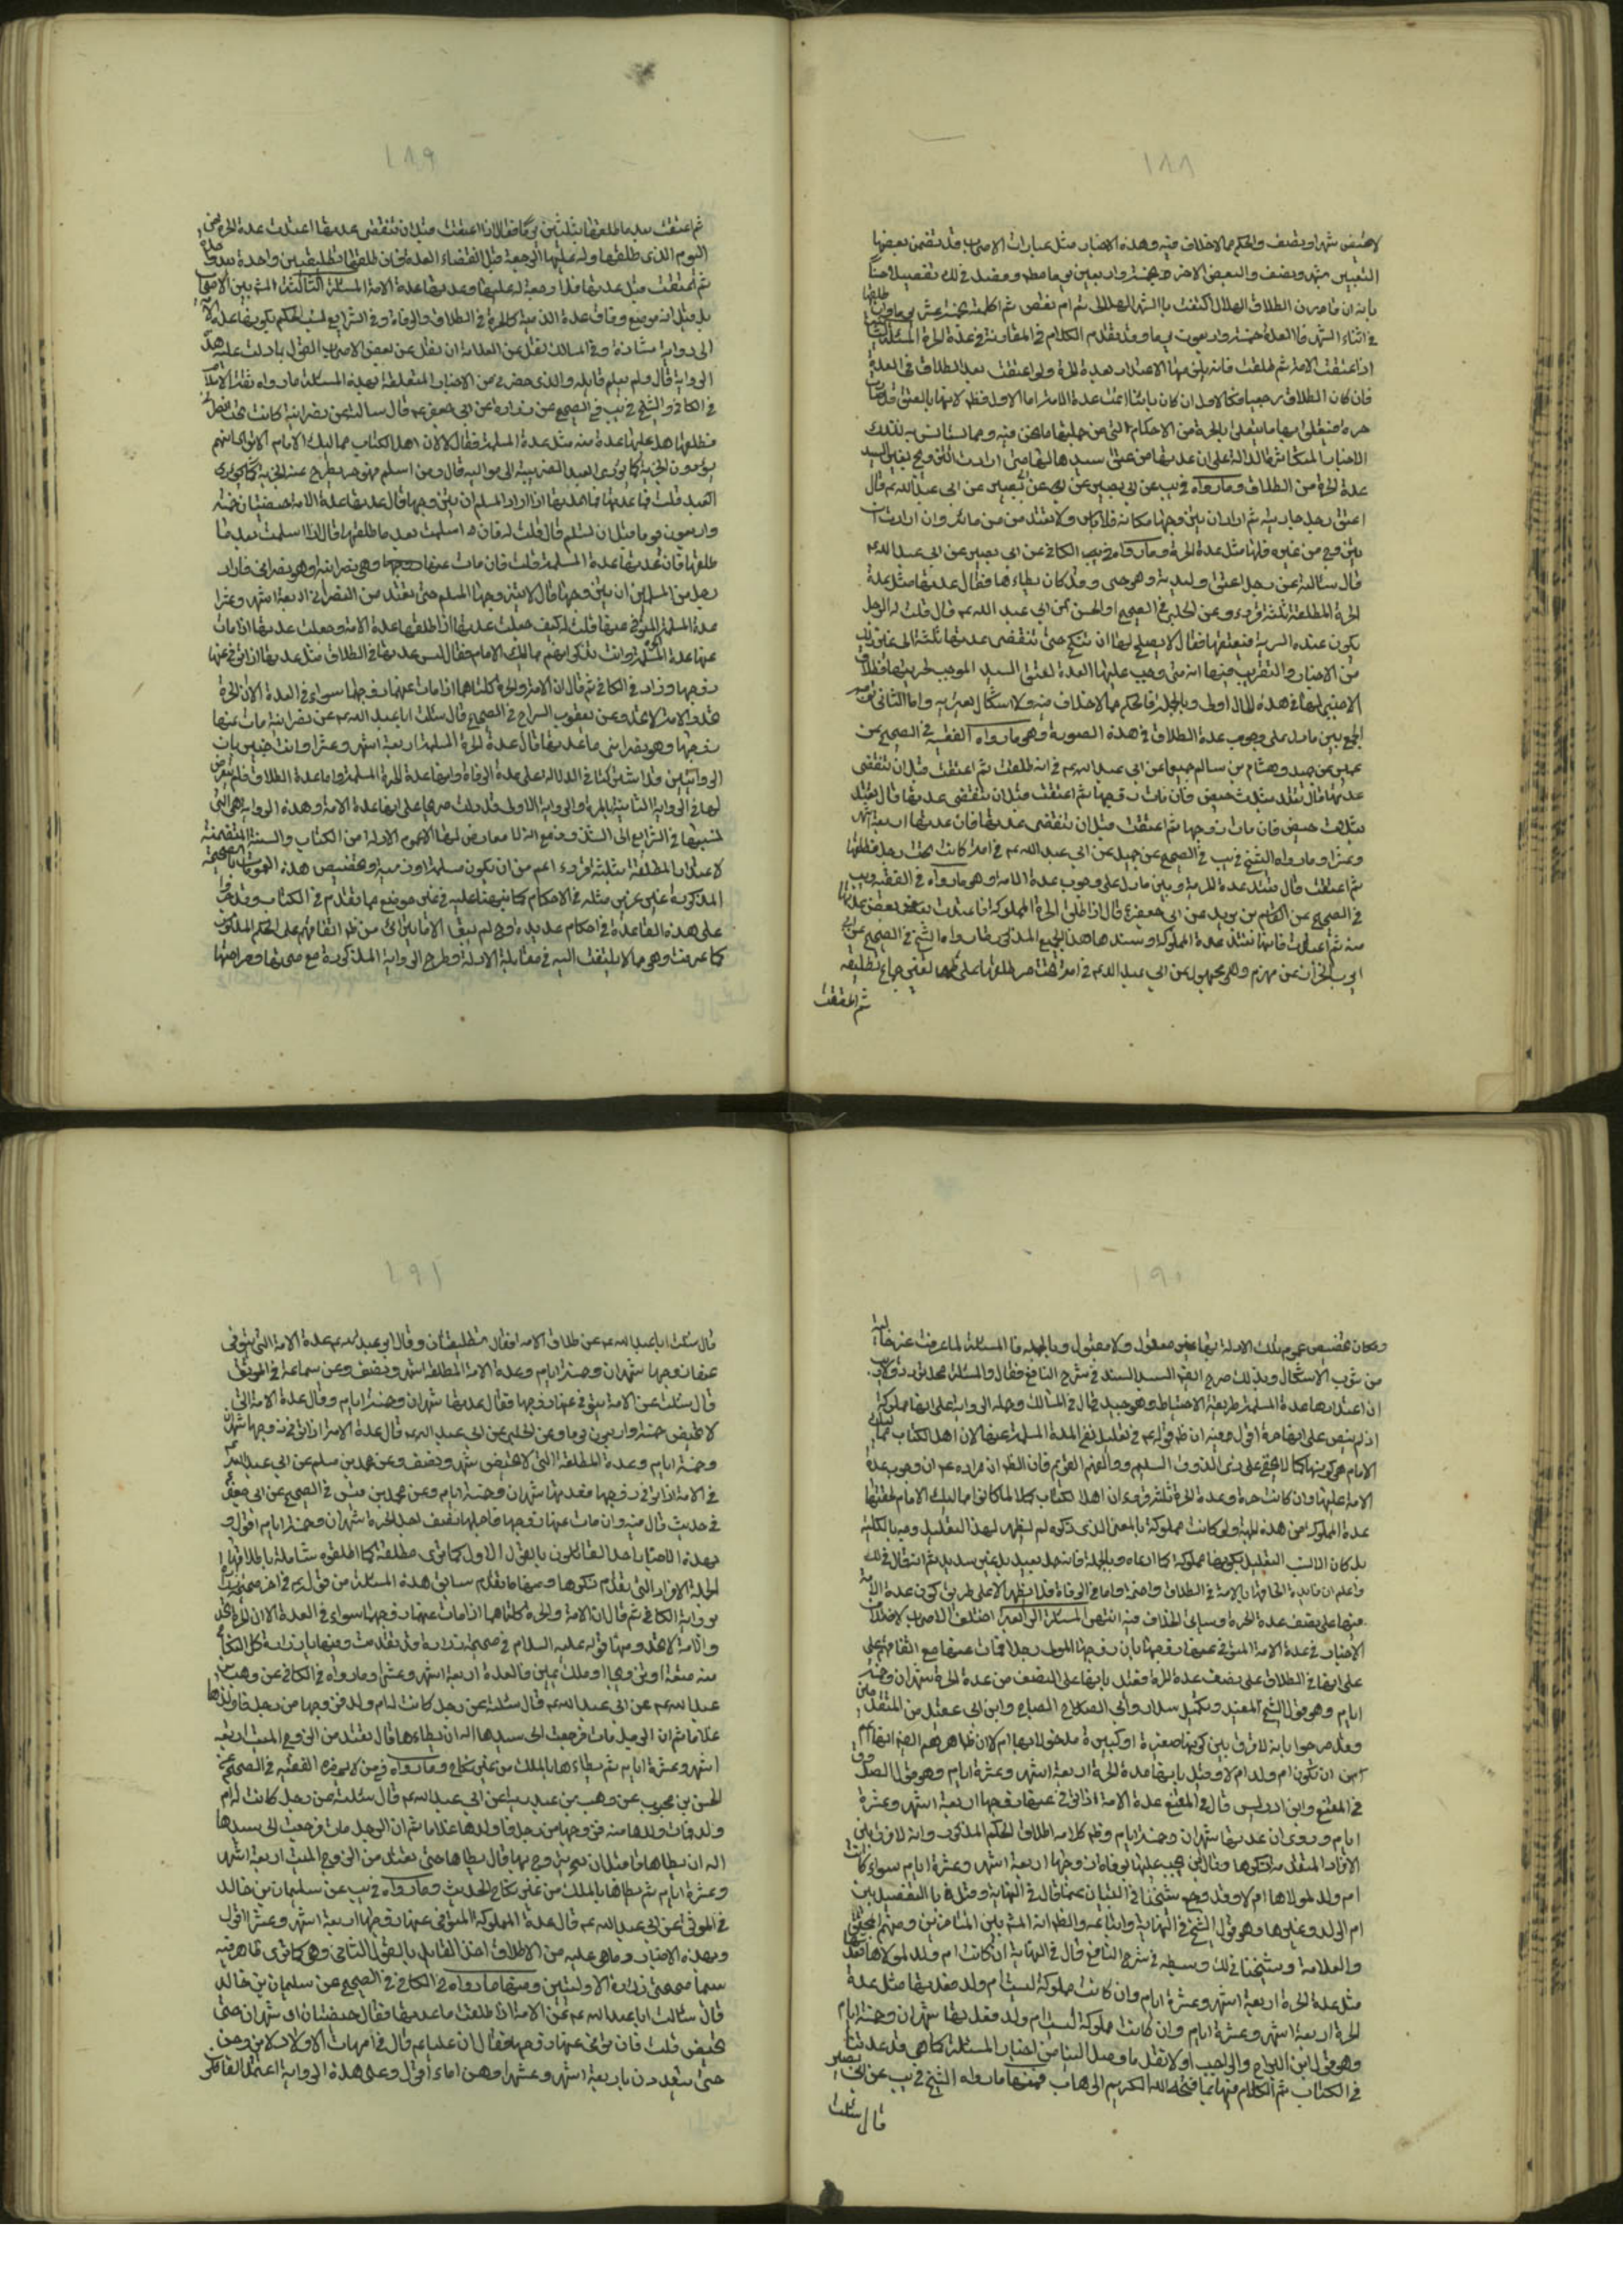 ١٨٨
لا تحيض شهرا ونصف والحكم مما لا خلاف فيه وهذه الاخبار مثل عبارات الاصحاب قد تضمن بعضها
التعبير بشهر ونصف والبعض الاخر بخمسة واربعين يوما
في اثناء الشهر فالعدة خمسة واربعون يوما وقد تقدم الكلام في المقام في عدة الحرة المسئلة الثانية
اذا اعتقت الامة ثم طلقت فانه يلزمها الاعتداد بعدة الحرة ولو اعتقت بعد الطلاق في العدة
فان كان الطلاق رجعيا فكالاول وان كان باينا اتمت عدة الامة اما الاول فظ لانها بالعتق قد صارت
حرة فيتعلق بها ما يتعلق بالحرة من الاحكام التي من جملتها ما نحن فيه ومما يستانس به لذلك
الاخبار المتكاثرة الدالة على ان عدتها من عتق سيدها لها متى ارادت التزويج بغير السيد
عدة الحرة من الطلاق ومنها ما رواه في يب عن ابي بصير عن ابي عبد الله ع قال
اعتق رجل جاريته ثم اراد ان يتزوجها مكانه فلا باس ولا تعتد من مائه وان ارادت ان
يتزوج من غيره فلها مثل عدة الحرة وما رواه في الكافي عن ابي بصير عن ابي عبد الله ع
قال سالته عن رجل اعتق وليدته وهو حي وقد كان يطاءها فقال عدتها مثل عدة
الحرة المطلقة ثلثة قروء وعن الحلبي في الصحيح او الحسن عن ابي عبد الله ع قال قلت له الرجل
يكون عنده السرية فيعتقها فقال لا يصلح لها ان تنكح حتى تنقضي عدتها ثلثة اشهر الى غير ذلك
من الاخبار والتقريب فيها انه متى وجب عليها العدة لعتق السيد الموجب لحريتها فطلاق
الاجنبي لها في هذه الحال اولى وبالجملة فالحكم مما لا خلاف فيه ولا اشكال يعتريه واما الثاني فوجهه
الجمع بين ما دل على وجوب عدة الطلاق في هذه الصورة وهو ما رواه الفقيه في الصحيح عن
جميل وهشام بن سالم جميعا عن ابي عبد الله ع في امة طلقت ثم اعتقت قبل ان تنقضي
عدتها قال تعتد بثلث حيض فان مات زوجها ثم اعتقت قبل ان تنقضي عدتها قال تعتد
بثلث حيض فان مات زوجها ثم اعتقت قبل ان تنقضي عدتها فان عدتها اربعة اشهر
وعشرا وما رواه الشيخ في يب في الصحيح عن جميل عن ابي عبد الله ع في امة كانت تحت رجل فطلقها
ثم اعتقت قال تعتد عدة الحرة وبين ما دل على وجوب عدة الامة وهو ما رواه في الفقيه ويب
في الصحيح عن القاسم بن بريد عن ابي جعفر ع قال اذا طلق الحر المملوكة فاعتدت بعض عدتها
منه ثم اعتقت فانها تعتد عدة المملوكة ويستند هذا الجمع المذكور ما رواه الشيخ في الصحيح عن ابي
ايوب الخزاز عن مهزم وهو مجهول عن ابي عبد الله ع في امة تحت حر طلقها على طهر بغير جماع تطليقة
ثم اعتقت
١٨٩
ثم اعتقت بعد ما طلقها بثلثين يوما فقال اذا اعتقت قبل ان تنقضي عدتها اعتدت عدة الحرة من
اليوم الذي طلقها وله عليها الرجعة قبل انقضاء العدة فان طلقها تطليقتين واحدة بعد واحدة
ثم اعتقت قبل عدتها فلا رجعة له عليها وعدتها عدة الامة المسئلة الثالثة المشهور بين الاصحاب
بل قيل انه موضع وفاق عدة الذمية كالحرة في الطلاق والوفاة وفي الشرايع نسب الحكم بكونها عدة الامة
الى رواية شاذة وفي المسالك نقل عن العلامة ان نقل عن بعض الاصحاب القول بما دلت عليه هذه
الرواية قال ولم يعلم قايله والذي حضرني من الاخبار المتعلقة بهذه المسئلة ما رواه ثقة الاسلام
في الكافي والشيخ في يب في الصحيح عن زرارة عن ابي جعفر ع قال سالته عن نصرانية كانت تحت نصراني
فطلقها هل عليها عدة منه مثل عدة المسلمة فقال لا لان اهل الكتاب مماليك الامام الا ترى انهم
يؤدون الجزية كما يؤدي العبد الضريبة الى مواليه قال ومن اسلم منهم فهو حر يطرح عنه الجزية كما يؤدي
العبد قلت فما عدتها فما عدتها اذا اراد المسلم ان يتزوجها قال عدتها عدة الامة حيضتان خمسة
واربعون يوما قبل ان تسلم قال قلت له فان اسلمت بعد ما طلقها قال اذا اسلمت بعد ما
طلقها فان عدتها عدة المسلمة قلت فان مات عنها وهي نصرانية وهو نصراني فاراد
رجل من المسلمين ان يتزوجها قال لا يتزوجها المسلم حتى تعتد من النصراني اربعة اشهر وعشرا
عدة المسلمة المتوفى عنها قلت له كيف جعلت عدتها اذا طلقها عدة الامة وجعلت عدتها اذا مات
عنها عدة المسلمة وانت تذكر انهم مماليك الامام فقال ليس عدتها في الطلاق مثل عدتها اذا توفي عنها
زوجها وزاد في الكافي ثم قال ان الامة والحرة كلتاهما اذا مات عنها زوجها سواء في العدة الا ان الحرة
تحد والامة لا تحد وعن يعقوب السراج في الصحيح قال سئلت ابا عبد الله ع عن نصرانية مات عنها
زوجها وهو نصراني ما عدتها قال عدة الحرة المسلمة اربعة اشهر وعشرا وانت خبير بان
الروايتين قد اشتركتا في الدلالة على عدة الوفاة وانها عدة الحرة المسلمة واما عدة الطلاق فلم يتعرض
لها في الرواية الثانية بالمرة والرواية الاولى قد دلت صريحا على انها عدة الامة وهذه الرواية هي التي
نسبها في الشرايع الى الشذوذ مع انه لا معارض لها الا عموم الادلة من الكتاب والسنة المتضمنة
لاعتداد المطلقة بثلثة قروء اعم من ان تكون مسلمة او ذمية وتخصيص هذه العمومات بالصحيحة
المذكورة غير عزيز مثله في الاحكام كما نبهنا عليه في غير موضع مما تقدم في الكتاب وقد جروا
على هذه القاعدة في احكام عديدة وح لم يبق الا ما يترائ من ظ اتفاقهم على الحكم المذكور
كما عرفت وهي مما لا يلتفت اليه في مقابلة الادلة وطرح الرواية المذكورة مع صحتها وصراحتها
١٩٠
وامكان تخصيص عموم تلك الادلة بها غير معقول ولا مقبول وبالجملة فالمسئلة لما عرفت غير خالية
من شوب الاشكال وبذلك صرح السيد السند في شرح النافع فقال والمسئلة محل تردد ولا ريب
ان اعتدادها عدة المسلمة طريقة الاحتياط وهو جيد وقال في المسالك وحمله الرواية على انها مملوكة
الامام هي كونها كما لا يخفى على ذي الذوق السليم والفهم القويم فان الظ ان مراده ع ان وجوب عدة
الامة عليها وان كانت حرة وعدة الحرة ثلثة قروء ان اهل الكتاب كملا لما كانوا مماليك الامام لحقتها
عدة المملوكة من هذه الجهة ولو كانت مملوكة بالمعنى الذي ذكره لم يظهر لهذا التعليل وجه بالكلية
بل كان الانسب التعليل بكونها مملوكة كما ادعاه وبالجملة فانه حمل بعيد بل غير سديد ثم انه قال في لك
واعلم ان فايدة الحاقها بالامة في الطلاق واضحة واما في الوفاة فلا يظهر الا على طريق كون عدة الامة
فيها على نصف عدة الحرة وسيأتي الخلاف فيه انتهى المسئلة الرابعة اختلف الاصحاب لاختلاف
الاخبار في عدة الامة المتوفى عنها زوجها بان زوجها المولى رجلا فمات عنها مع اتفاقهم على
على انها في الطلاق على نصف عدة الحرة فقيل بانها على النصف من عدة الحرة شهران وخمسة
ايام وهو قول الشيخ المفيد وتلميذه سلار وابي الصلاح وابن ابي عقيل من المتقدمين
وقد صرحوا بانه لا فرق بين كونها صغيرة او كبيرة مدخولا بها ام لا
من ان تكون ام ولد ام لا وقيل بانها عدة الحرة اربعة اشهر وعشرة ايام وهو قول الصدوق
في المقنع وابن ادريس قال في المقنع عدة الامة اذا توفي عنها زوجها اربعة اشهر وعشرة
ايام وروي ان عدتها شهران وخمسة ايام وظ كلامه اطلاق الحكم المذكور وانه لا فرق بين
الافراد المتقدم ذكرها وقال ابن
ام ولد لمولاها ام لا وقد رجع شيخنا في التبيان عما قال في النهاية وقيل بالتفصيل بين
ام الولد وغيرها وهو قول الشيخ في النهاية واتباعه والظ انه المشهور بين المتاخرين ومنهم المحقق
والعلامة وشيخنا في لك وسبطه في شرح النافع قال في النهاية ان كانت ام ولد لمولاها فعدتها
مثل عدة الحرة اربعة اشهر وعشرة ايام وان كانت مملوكة ليست ام ولد فعدتها مثل عدة
الحرة اربعة اشهر وعشرة ايام وان كانت مملوكة ليست ام ولد فعدتها شهران وخمسة ايام
وهو قول ابن البراج والواجب اولا نقل ما وصل الينا من اخبار المسئلة كما هي قاعدتنا
في الكتاب ثم الكلام فيها بما فتحه الله الكريم الوهاب فمنها ما رواه الشيخ في يب عن ابي بصير
قال سئلت
١٩١
قال سئلت ابا عبد الله ع عن طلاق الامة فقال تطليقتان وقال ابو عبد الله ع عدة الامة التي يتوفى
عنها زوجها شهران وخمسة ايام وعدة الامة المطلقة شهر ونصف وعن سماعة في الموثق
قال سئلته عن الامة يتوفى عنها زوجها فقال عدتها شهران وخمسة ايام وقال عدة الامة التي
لا تحيض خمسة واربعون يوما وعن الحلبي عن ابي عبد الله ع قال عدة الامة اذا توفي زوجها شهران
وخمسة ايام وعدة المطلقة التي لا تحيض شهر ونصف وعن محمد بن مسلم عن ابي عبد الله ع
في الامة اذا توفي زوجها فعدتها شهران وخمسة ايام وعن محمد بن قيس في الصحيح عن ابي جعفر ع
في حديث قال فيه وان مات عنها زوجها فاجلها نصف اجل الحرة شهران وخمسة ايام اقول و
بهذه الاخبار اخذ القائلون بالقول الاول كما ترى مطلقة كما اطلقوه شاملة باطلاقها
لجملة الافراد التي تقدم ذكرها ومنها ما تقدم سابق هذه المسئلة من قوله ع في اخر صحيحة زرارة
برواية الكافي ثم قال ان الامة والحرة كلتاهما اذا مات عنها زوجها سواء في العدة الا ان الحرة تحد
والامة لا تحد ومنها قوله عليه السلام في صحيحة زرارة وقد تقدمت وفيها يا زرارة كل النكاح
منه متعة او تزويجا او ملك يمين فالعدة اربعة اشهر وعشرا وما رواه في الكافي عن وهب بن
عبد ربه عن ابي عبد الله ع قال سئلته عن رجل كانت له ام ولد فزوجها من رجل فاولدها
غلاما ثم ان الرجل مات فرجعت الى سيدها اله ان يطاءها قال تعتد من الزوج الميت اربعة
اشهر وعشرة ايام ثم يطاءها بالملك من غير نكاح وما رواه في من لا يحضره الفقيه في الصحيح عن
الحسن بن محبوب عن وهب بن عبد ربه عن ابي عبد الله ع قال سئلته عن رجل كانت له ام
ولد فمات ولدها منه فزوجها من رجل فاولدها غلاما ثم ان الرجل مات فرجعت الى سيدها
اله ان يطاها قبل ان يتزوج بها قال لا يطاها حتى تعتد من الزوج الميت اربعة اشهر
وعشرة ايام ثم يطاها بالملك من غير نكاح الحديث وما رواه في يب عن سليمان بن خالد
في الموثق عن ابي عبد الله ع قال عدة المملوكة المتوفى عنها زوجها اربعة اشهر وعشرا اقول
وبهذه الاخبار وما هي عليه من الاطلاق اخذ القايل بالقول الثاني وهي كما ترى ظاهرة فيه
سيما صحيحتي زرارة الاوليتين ومنها ما رواه في الكافي في الصحيح عن سليمان بن خالد
قال سالت ابا عبد الله ع عن الامة اذا طلقت ما عدتها فقال حيضتان او شهران حتى
تحيض قلت فان توفي عنها زوجها فقال ان عليا ع قال في امهات الاولاد لا يتزوجن
حتى يعتددن باربعة اشهر وعشرا وهن اماء اقول وعلى هذه الرواية اعتمد القائلون